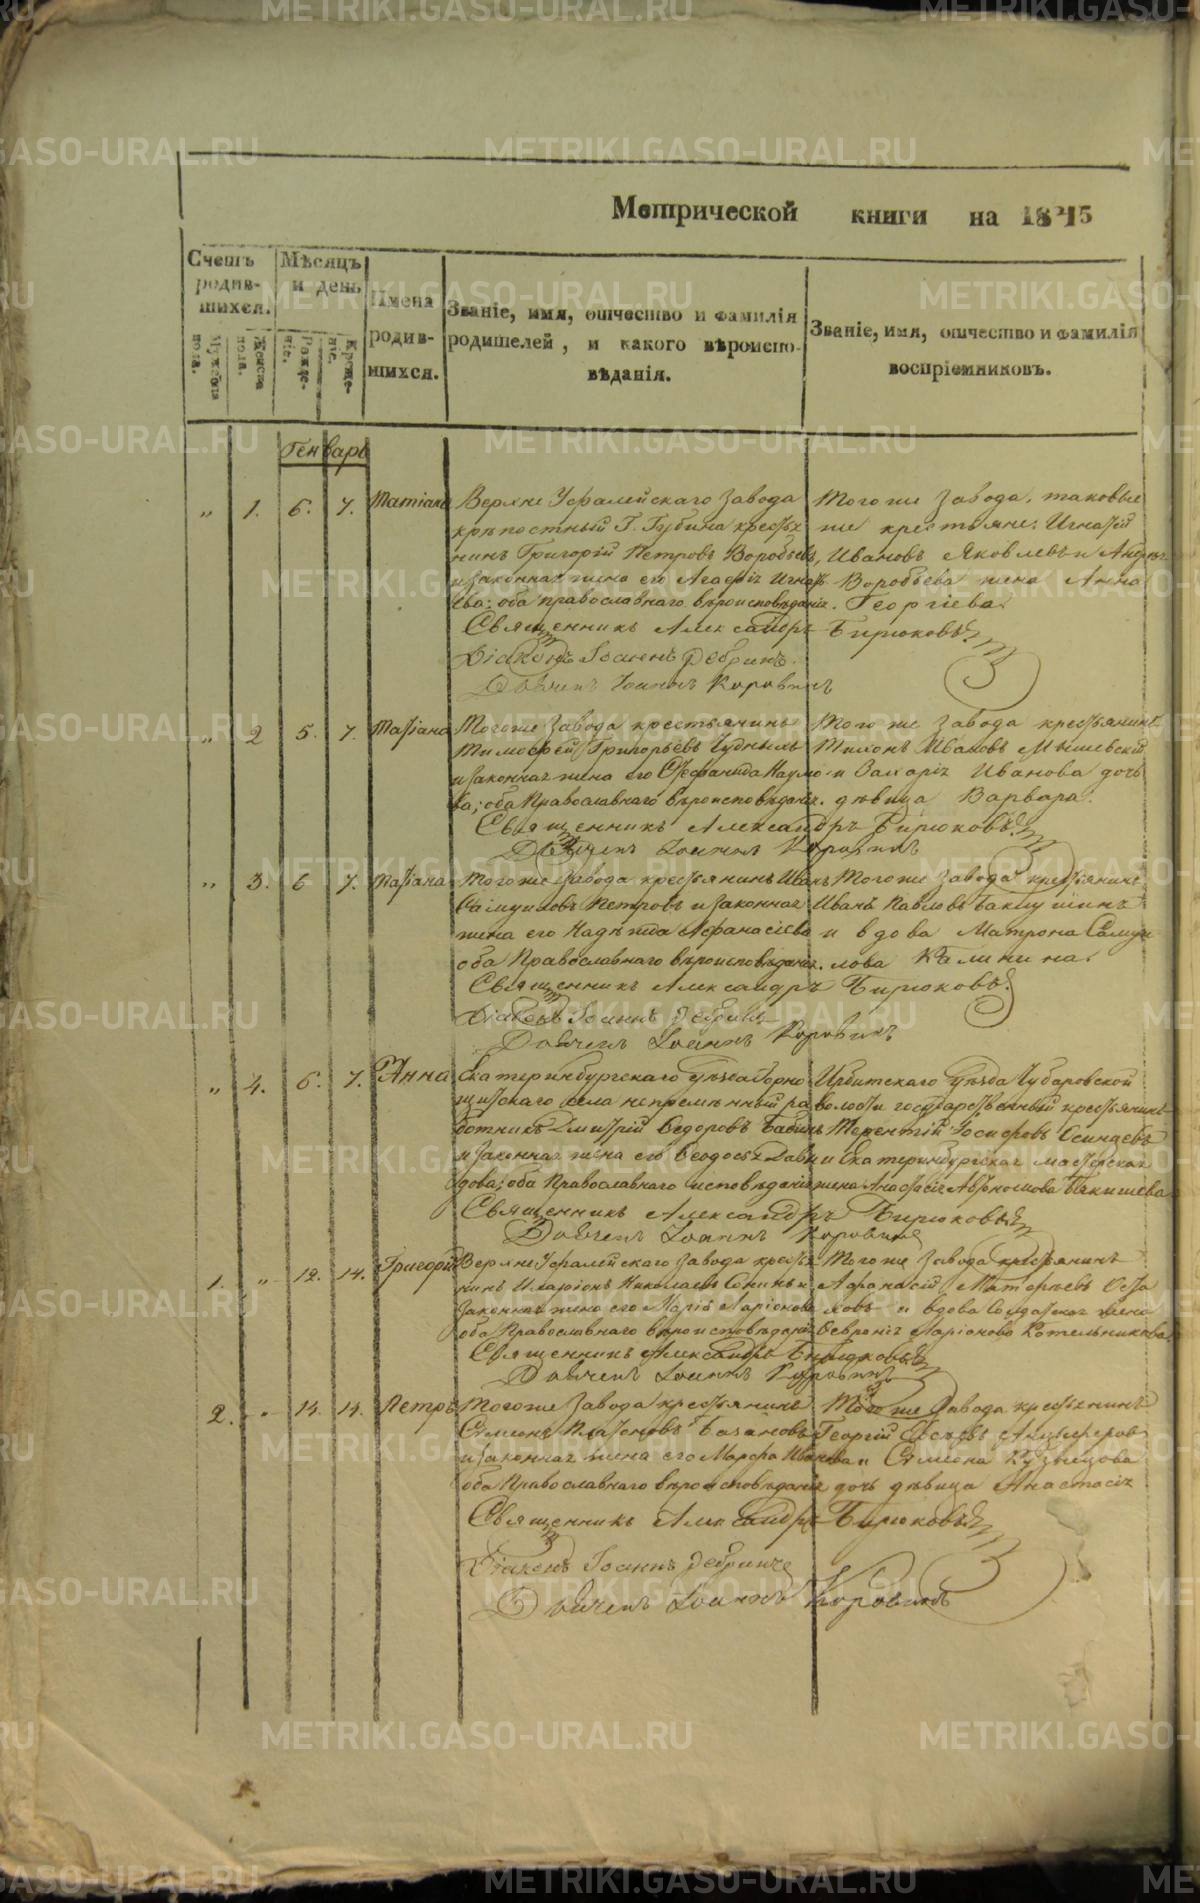 METRIKI.GASO-URAL.RU
Метрической книги на 1845
Счетъ родившихся.
Мужеска пола.
Женска пола.
Мѣсяцъ и день
Рожденіе.
Крещеніе.
Имена родившихся.
Званіе, имя, отчество и фамилія родителей, и какого вѣроисповѣданія.
Званіе, имя, отчество и фамилія воспріемниковъ.
Генварь
„ 1. 6. 7. Татіана
Верхне Уфалейскаго Завода
крѣпостный Г. Губина крестья
нинъ Григорій Петровъ Воробьевъ,
и законная жена его Агафія Игнать
ева; оба православнаго вѣроисповѣданія.
Тогоже Завода, таковые
же крестьяне: Игнатій
Ивановъ Яковлевъ и Андрея
Воробьева жена Анна
Георгіева.
Священникъ Александръ Бирюковъ.
Діаконъ Іоаннъ
Дьячекъ Іоаннъ Коровинъ
„ 2 5. 7. Татіана
Тогоже Завода крестьянинъ
Тимофей Григорьевъ Чудныхъ
и законная жена его Стефанида Наумо
ва; оба Православнаго вѣроисповѣданія.
Тогоже Завода крестьянинъ
Тихонъ Ивановъ Мышевскій
и Захарія Иванова дочь
дѣвица Варвара.
Священникъ Александръ Бирюковъ.
Дьячекъ Іоаннъ Коровинъ
„ 3. 6 7. Татіана
Тогоже Завода крестьянинъ Иванъ
Самуиловъ Петровъ и законная
жена его Надѣжда Афанасіева
оба Православнаго вѣроисповѣданія.
Тогоже Завода крестьянинъ
Иванъ Павловъ Баклушинъ
и вдова Матрона Самуи
лова Калинина.
Священникъ Александръ Бирюковъ.
Діаконъ Іоаннъ
Дьячекъ Іоаннъ Коровинъ
„ 4. 6. 7. Анна
Екатеринбургскаго уѣзда Горно
щитскаго села непремѣнный ра
ботникъ Дмитрій Ѳедоровъ Бабинъ
и законная жена его Ѳеодосья Давы
дова; оба Православнаго исповѣданія
Ирбитскаго уѣзда Чубаровской
волости государственный крестьянинъ
Терентій Іосифовъ Осинцевъ
и Екатеринбургская мастерская
жена Анастасія
Священникъ Александръ Бирюковъ
Дьячекъ Іоаннъ Коровинъ
1. „ 12. 14. Григорій
Верхне Уфалейскаго Завода кресть
нинъ Иларіонъ Николаевъ и
законная жена его Марія Ларіонова
оба Православнаго вѣроисповѣданія
Тогоже Завода крестьянинъ
Афанасій
ховъ и вдова Солдатская жена
Февронія Ларіонова Котельникова
Священникъ Александръ Бирюковъ
Дьячекъ Іоаннъ Коровинъ
2. „ 14. 14. Петръ
Тогоже Завода крестьянинъ
Симеонъ Платоновъ
и законная жена его Марфа Иванова
оба Православнаго вѣроисповѣданія
Тогоже Завода крестьянинъ
Георгій
и Симеона Кузнецова
дочь дѣвица Анастасія
Священникъ Александръ Бирюковъ
Діаконъ Іоаннъ
Дьячекъ Іоаннъ Коровинъ